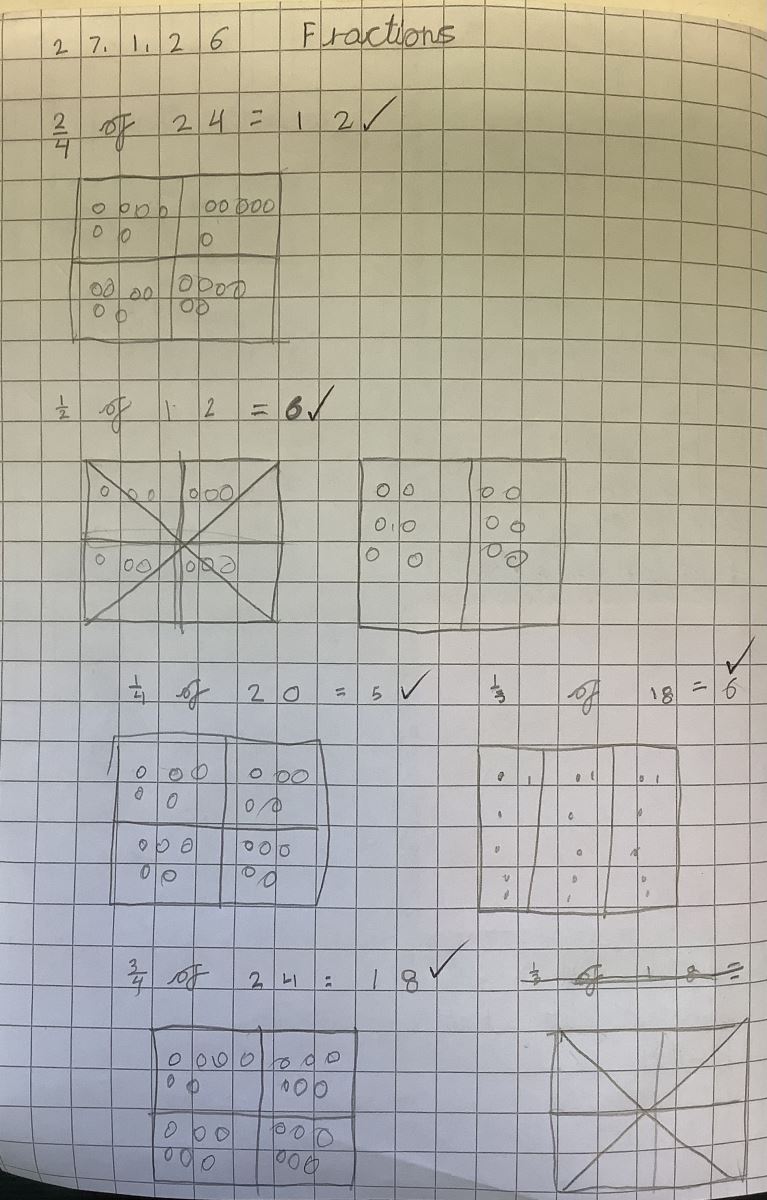 27.1.26 Fractions
2/4 of 24 = 12 ✓
1/2 of 12 = 6 ✓
1/4 of 20 = 5 ✓ 1/3 of 18 = 6 ✓
3/4 of 24 = 18 ✓ 1/3 of 18 =